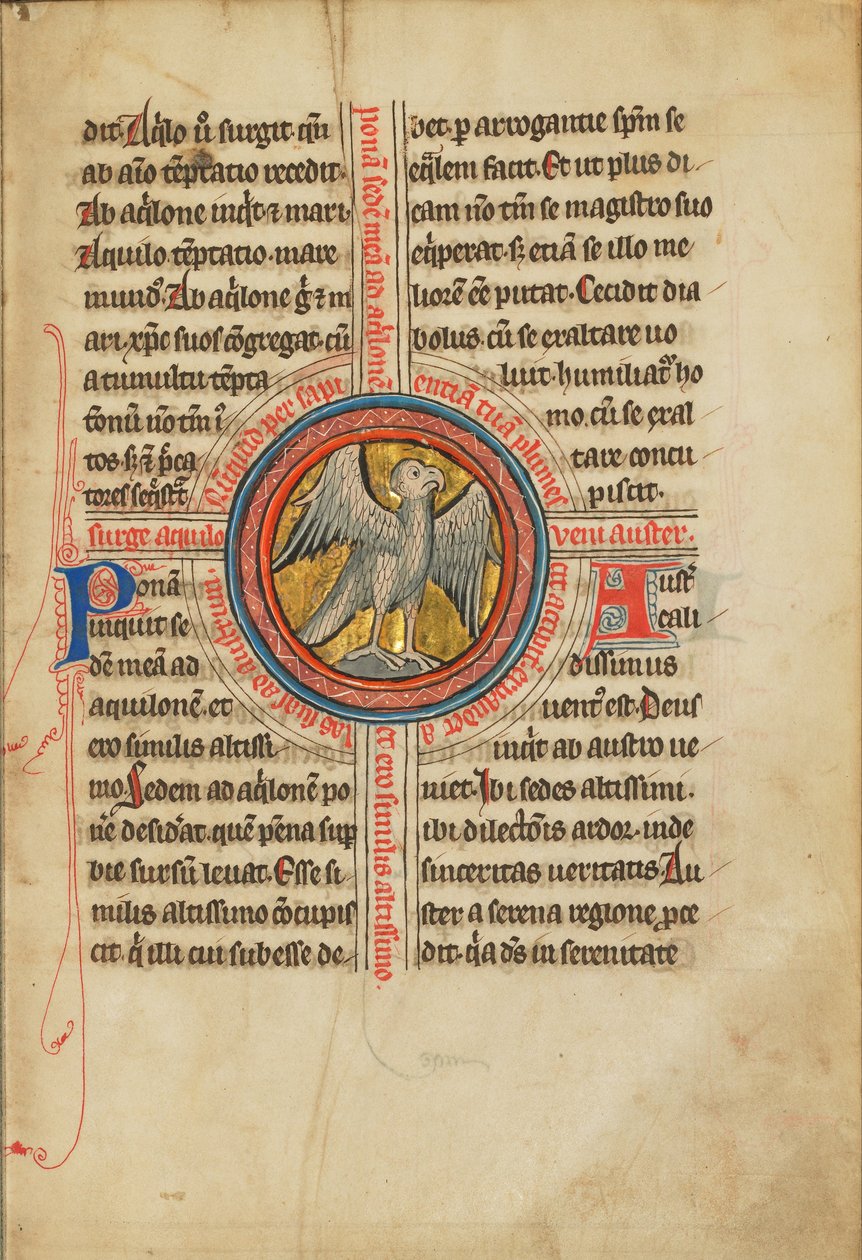 dit. Aq̇lo ů surgit. qm̄
ab aīo tēptatio recedit.
Ab aq̇lone inq̇t ⁊ mari.
Aquilo. tēptatio. mare
mund᷒. Ab aq̇lone ġ ⁊ m
ari. xp̄c suos c̄ogregat. cū
a tumultu tēpta
tionū n̄o tm̄ i᷒
tos. sꝫ ⁊ p̄ca
tores seq̄stᷓt
surge aquilo
Ponā
inquit se
dē meā ad
aquilonē. et
ero similis altissi
mo. Sedem ad aq̇lonē po
n̄e desid̾at. quē pēna sup̄
bie sursū levat. Esse si
milis altissimo c̄ocupis
cit. q̇ illi cui subesse de
bet. ꝑ arrogantie sp̄m se
eq̄lem facit. Et ut plus di
cam n̄o tm̄ se magistro suo
eq̇perat. sꝫ etiā se illo me
liorē ee putat. Cecidit dia
bolus. cū se exaltare uo
luit. humiliat᷒ ho
mo. cū se exal
tare concu
piscit.
veni auster.
Aust̾
cali
dissimus
uent᷒ est. Deus
inq̇t ab austro ue
niet. Ibi sedes altissimi.
ibi dilect̄ois ardor. inde
sinceritas ueritatis. Au
ster a serena regione ꝓce
dit. q̇a d̄s in serenitate
ponā sedē meā ad aq̇lonē
et ero similis altissimo.
Nūquid per sapi
entiā tuā plumes
cit accipit᷒ expandēs a
las suas ad austrum.